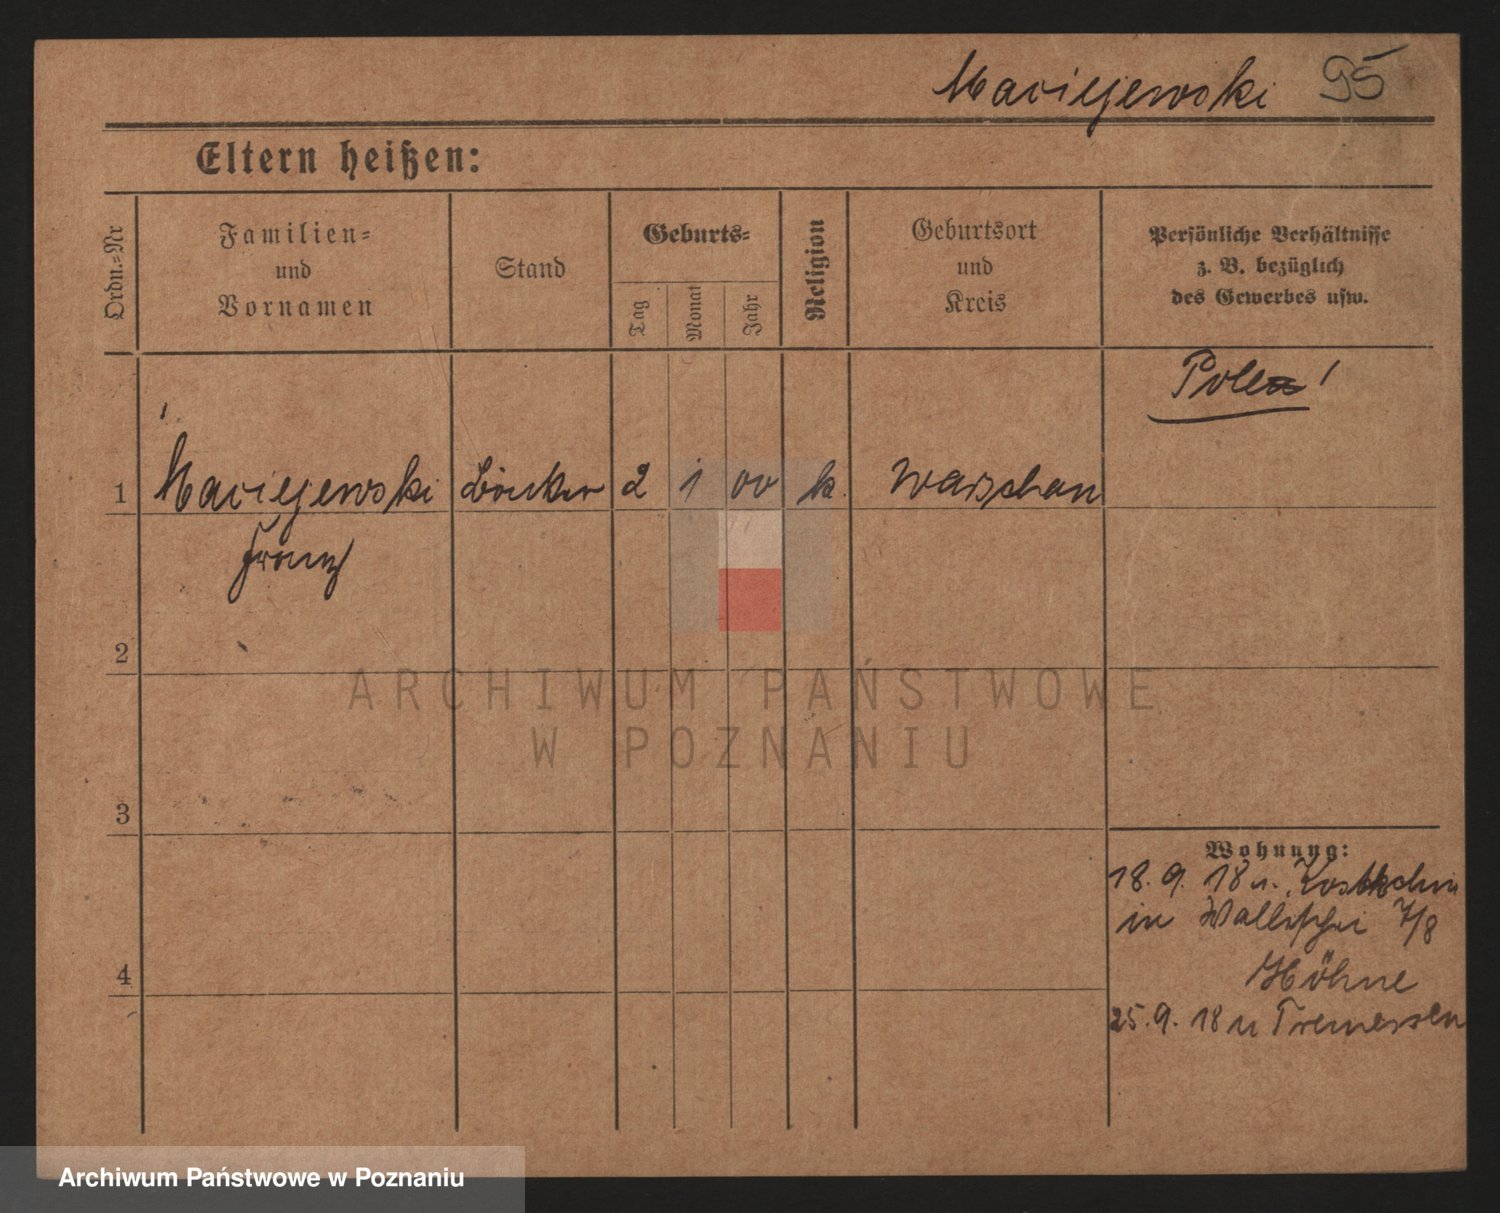 Maciejewski 95
Eltern heißen:
Ordn.=Nr
Familien=
und
Vornamen
Stand
Geburts=
Tag
Monat
Jahr
Religion
Geburtsort
und
Kreis
Persönliche Verhältnisse
z. B. bezüglich
des Gewerbes usw.
Pole
1 Maciejewski 2 1 00 k. Warschau
Franz
2
3
4
Wohnung:
18. 9. 18 v. Kostschin
in Wallischei 7/8
Höhne
25. 9. 18 n Tremessen
ARCHIWUM PAŃSTWOWE
W POZNANIU
Archiwum Państwowe w Poznaniu